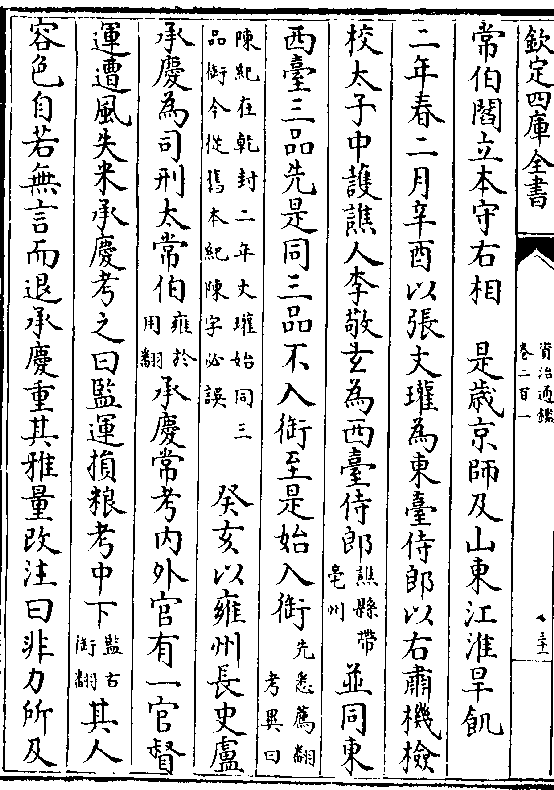 欽定四庫全書
資治通鑑
卷二百一
常伯閻立本守右相　是歲京師及山東江淮旱飢
二年春二月辛酉以張文瓘為東臺侍郎以右肅機檢
校太子中護譙人李敬玄為西臺侍郎譙縣帶亳州並同東
西臺三品先是同三品不入銜至是始入銜先悉薦翻考異曰
陳紀在乾封二年文瓘始同三品銜今從舊本紀陳字必誤　癸亥以雍州長史盧
承慶為司刑太常伯雍於用翻承慶常考內外官有一官督
運遭風失米承慶考之曰監運損粮考中下監古銜翻其人
容色自若無言而退承慶重其雅量改注曰非力所及